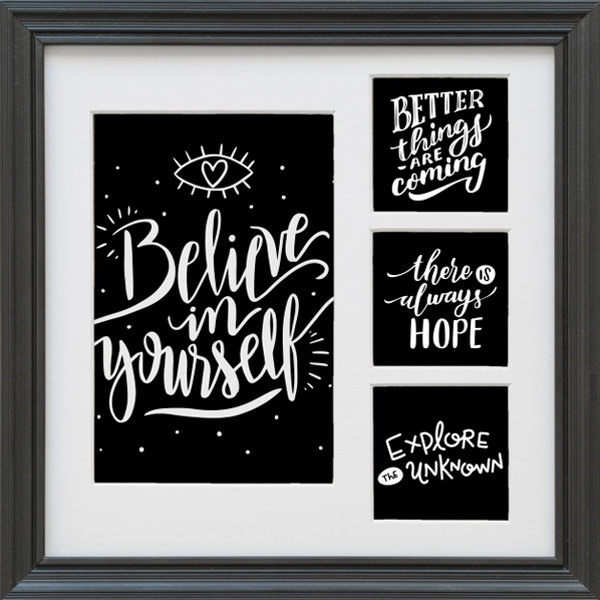 Believe
in
yourself
BETTER
things
ARE
coming
there IS
always
HOPE
EXPLORE
THE UNKNOWN